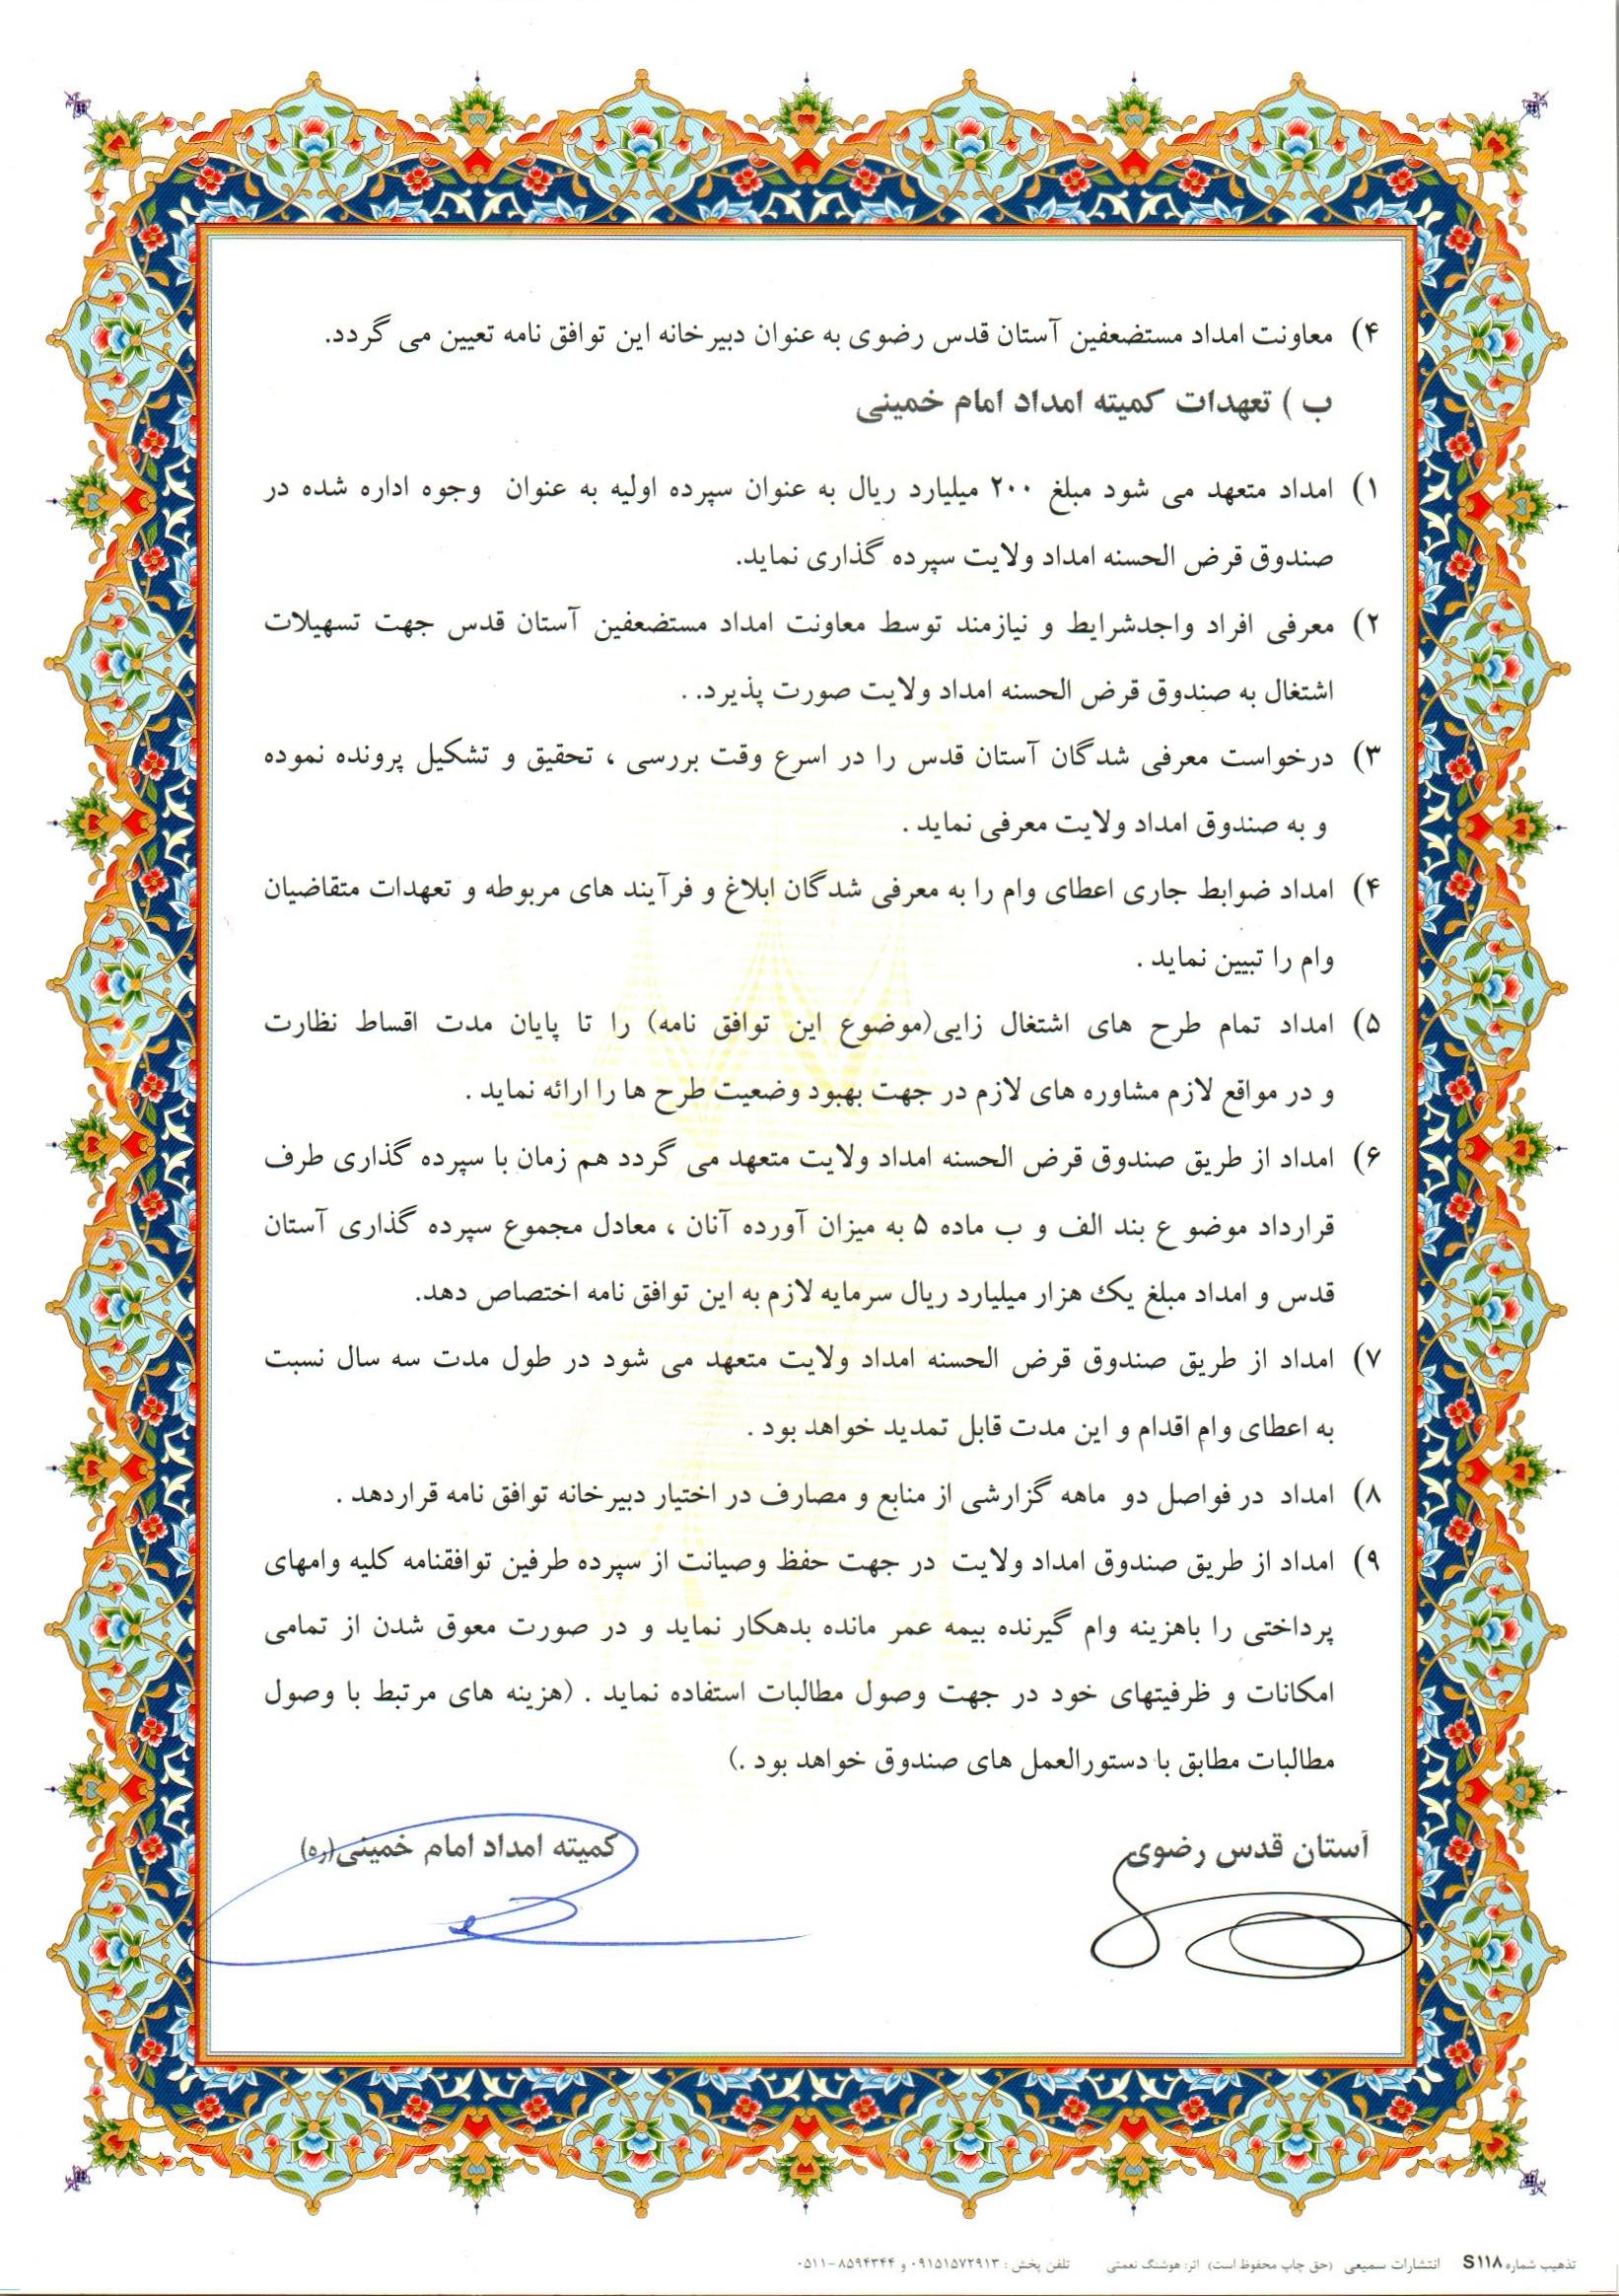 ۴) معاونت امداد مستضعفین آستان قدس رضوی به عنوان دبیرخانه این توافق نامه تعیین می گردد.
ب ) تعهدات کمیته امداد امام خمینی
۱) امداد متعهد می شود مبلغ ۲۰۰ میلیارد ریال به عنوان سپرده اولیه به عنوان وجوه اداره شده در
صندوق قرض الحسنه امداد ولایت سپرده گذاری نماید.
۲) معرفی افراد واجدشرایط و نیازمند توسط معاونت امداد مستضعفین آستان قدس جهت تسهیلات
اشتغال به صندوق قرض الحسنه امداد ولایت صورت پذیرد. .
۳) درخواست معرفی شدگان آستان قدس را در اسرع وقت بررسی ، تحقیق و تشکیل پرونده نموده
و به صندوق امداد ولایت معرفی نماید .
۴) امداد ضوابط جاری اعطای وام را به معرفی شدگان ابلاغ و فرآیند های مربوطه و تعهدات متقاضیان
وام را تبیین نماید .
۵) امداد تمام طرح های اشتغال زایی(موضوع این توافق نامه) را تا پایان مدت اقساط نظارت
و در مواقع لازم مشاوره های لازم در جهت بهبود وضعیت طرح ها را ارائه نماید .
۶) امداد از طریق صندوق قرض الحسنه امداد ولایت متعهد می گردد هم زمان با سپرده گذاری طرف
قرارداد موضو ع بند الف و ب ماده ۵ به میزان آورده آنان ، معادل مجموع سپرده گذاری آستان
قدس و امداد مبلغ یک هزار میلیارد ریال سرمایه لازم به این توافق نامه اختصاص دهد.
۷) امداد از طریق صندوق قرض الحسنه امداد ولایت متعهد می شود در طول مدت سه سال نسبت
به اعطای وام اقدام و این مدت قابل تمدید خواهد بود .
۸) امداد در فواصل دو ماهه گزارشی از منابع و مصارف در اختیار دبیرخانه توافق نامه قراردهد .
۹) امداد از طریق صندوق امداد ولایت در جهت حفظ وصیانت از سپرده طرفین توافقنامه کلیه وامهای
پرداختی را باهزینه وام گیرنده بیمه عمر مانده بدهکار نماید و در صورت معوق شدن از تمامی
امکانات و ظرفیتهای خود در جهت وصول مطالبات استفاده نماید . (هزینه های مرتبط با وصول
مطالبات مطابق با دستورالعمل های صندوق خواهد بود .)
آستان قدس رضوی کمیته امداد امام خمینی(ره)
تذهیب شماره S۱۱۸ انتشارات سمیعی (حق چاپ محفوظ است) اثر: هوشنگ نعمتی تلفن پخش : ۰۹۱۵۱۵۷۲۹۱۳ و ۸۵۹۴۳۴۴-۰۵۱۱